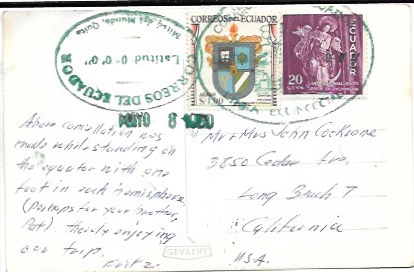 CORREOS DEL ECUADOR
Mitad del Mundo, Quito
Latitud 0° 0' 0"
CORREOS DEL ECUADOR
AEREO
S/.1.00
ECUADOR
20
MAYO 8
Above cancellation was
made while standing on
the equator with one
foot in each hemisphere
(perhaps for your brother,
Pat) thoroly enjoying
our trip.
Fritz
Mr & Mrs John Cockrone
3850 Cedar Ave,
Long Beach 7
California
USA.
GEVAERT